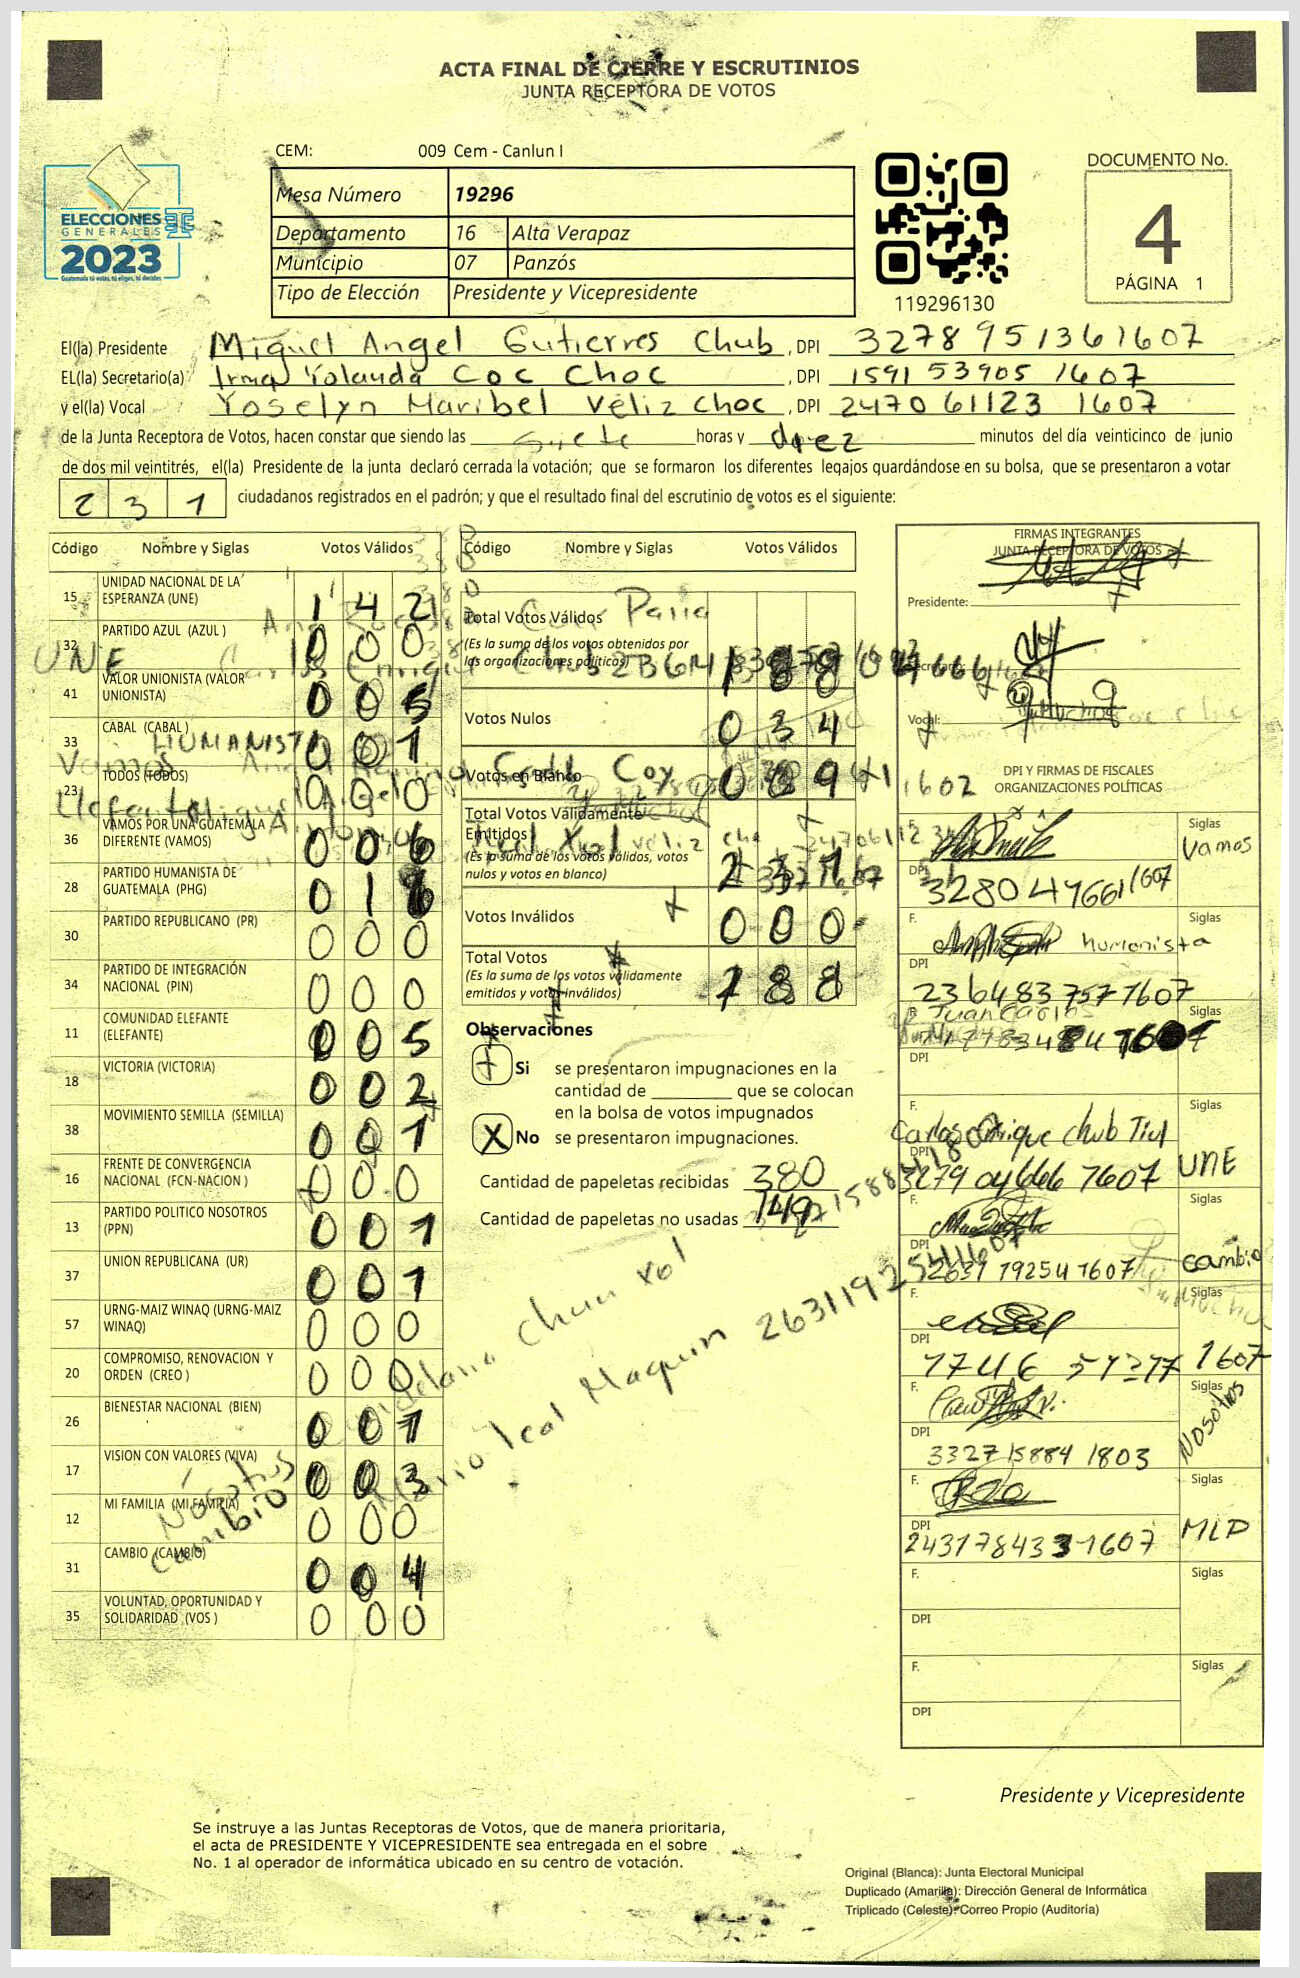 ACTA FINAL DE CIERRE Y ESCRUTINIOS
JUNTA RECEPTORA DE VOTOS
CEM: 009 Cem - Canlun I
ELECCIONES
GENERALES
2023
Guatemala tú votas, tú eliges, tú decides
Mesa Número 19296
Departamento 16 Alta Verapaz
Municipio 07 Panzós
Tipo de Elección Presidente y Vicepresidente
119296130
DOCUMENTO No.
4
PÁGINA 1
El(la) Presidente Miguel Angel Gutierres Chub, DPI 3278951361607
EL(la) Secretario(a) Irma Yolanda Coc Choc, DPI 1591 53905 1607
y el(la) Vocal Yoselyn Maribel Véliz choc, DPI 2470 61123 1607
de la Junta Receptora de Votos, hacen constar que siendo las siete horas y diez minutos del día veinticinco de junio
de dos mil veintitrés, el(la) Presidente de la junta declaró cerrada la votación; que se formaron los diferentes legajos guardándose en su bolsa, que se presentaron a votar
231 ciudadanos registrados en el padrón; y que el resultado final del escrutinio de votos es el siguiente:
Código Nombre y Siglas Votos Válidos
15 UNIDAD NACIONAL DE LA ESPERANZA (UNE) 1 4 2
32 PARTIDO AZUL (AZUL ) 0 0 0
41 VALOR UNIONISTA (VALOR UNIONISTA) 0 0 5
33 CABAL (CABAL ) 0 0 1
23 TODOS (TODOS) 0 0 0
36 VAMOS POR UNA GUATEMALA DIFERENTE (VAMOS) 0 0 6
28 PARTIDO HUMANISTA DE GUATEMALA (PHG) 0 1
30 PARTIDO REPUBLICANO (PR) 0 0 0
34 PARTIDO DE INTEGRACIÓN NACIONAL (PIN) 0 0 0
11 COMUNIDAD ELEFANTE (ELEFANTE) 0 0 5
18 VICTORIA (VICTORIA) 0 0 2
38 MOVIMIENTO SEMILLA (SEMILLA) 0 0 1
16 FRENTE DE CONVERGENCIA NACIONAL (FCN-NACION ) 0 0 0
13 PARTIDO POLITICO NOSOTROS (PPN) 0 0 1
37 UNION REPUBLICANA (UR) 0 0 1
57 URNG-MAIZ WINAQ (URNG-MAIZ WINAQ) 0 0 0
20 COMPROMISO, RENOVACION Y ORDEN (CREO ) 0 0 0
26 BIENESTAR NACIONAL (BIEN) 0 0 1
17 VISION CON VALORES (VIVA) 0 0 3
12 MI FAMILIA (MI FAMILIA) 0 0 0
31 CAMBIO (CAMBIO) 0 0 4
35 VOLUNTAD, OPORTUNIDAD Y SOLIDARIDAD (VOS ) 0 0 0
UNE
HUMANISTA
Vamos
Elefante
Nosotros
Cambio
chun xol
Mario Ical Maquin 2631192541607
Código Nombre y Siglas Votos Válidos
Total Votos Válidos
(Es la suma de los votos obtenidos por
las organizaciones políticas) 1 8 8
Votos Nulos 0 3 4
Votos en Blanco 0 9
Total Votos Válidamente
Emitidos
(Es la suma de los votos válidos, votos
nulos y votos en blanco) 2 3 1
Votos Inválidos 0 0 0
Total Votos
(Es la suma de los votos válidamente
emitidos y votos inválidos) 1 8 8
Observaciones
Si se presentaron impugnaciones en la
cantidad de ________ que se colocan
en la bolsa de votos impugnados
X No se presentaron impugnaciones.
Cantidad de papeletas recibidas 380
Cantidad de papeletas no usadas 149
FIRMAS INTEGRANTES
JUNTA RECEPTORA DE VOTOS
Presidente:
Vocal:
DPI Y FIRMAS DE FISCALES
ORGANIZACIONES POLÍTICAS
F. Siglas Vamos
DPI 3280476611607
F. Siglas humanista
DPI 2364837571607
F. Juan Carlos Siglas
DPI
F. Carlos Enrique Chub Tiul Siglas UNE
DPI 3279046661607
F. Siglas cambio
DPI 2631192541607
F. Siglas
DPI 1746 1607
F. Siglas Nosotros
DPI 3327158841803
F. Siglas MLP
DPI 2431784331607
F. Siglas
DPI
F. Siglas
DPI
Presidente y Vicepresidente
Se instruye a las Juntas Receptoras de Votos, que de manera prioritaria,
el acta de PRESIDENTE Y VICEPRESIDENTE sea entregada en el sobre
No. 1 al operador de informática ubicado en su centro de votación.
Original (Blanca): Junta Electoral Municipal
Duplicado (Amarilla): Dirección General de Informática
Triplicado (Celeste): Correo Propio (Auditoría)